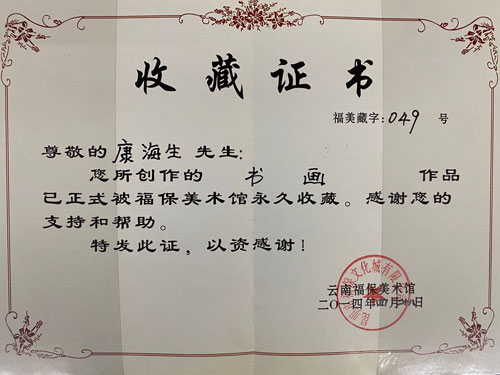 收藏证书
福美藏字：049 号
尊敬的康海生 先生：
您所创作的 书 画 作品
已正式被福保美术馆永久收藏。感谢您的
支持和帮助。
特发此证，以资感谢！
云南福保美术馆
二〇一四年四月 日